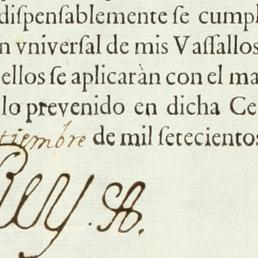 dispensablemente se cumpl
n vniversal de mis Vassallos
ellos se aplicaràn con el ma
lo prevenido en dicha Ce
tiembre de mil setecientos
Rey